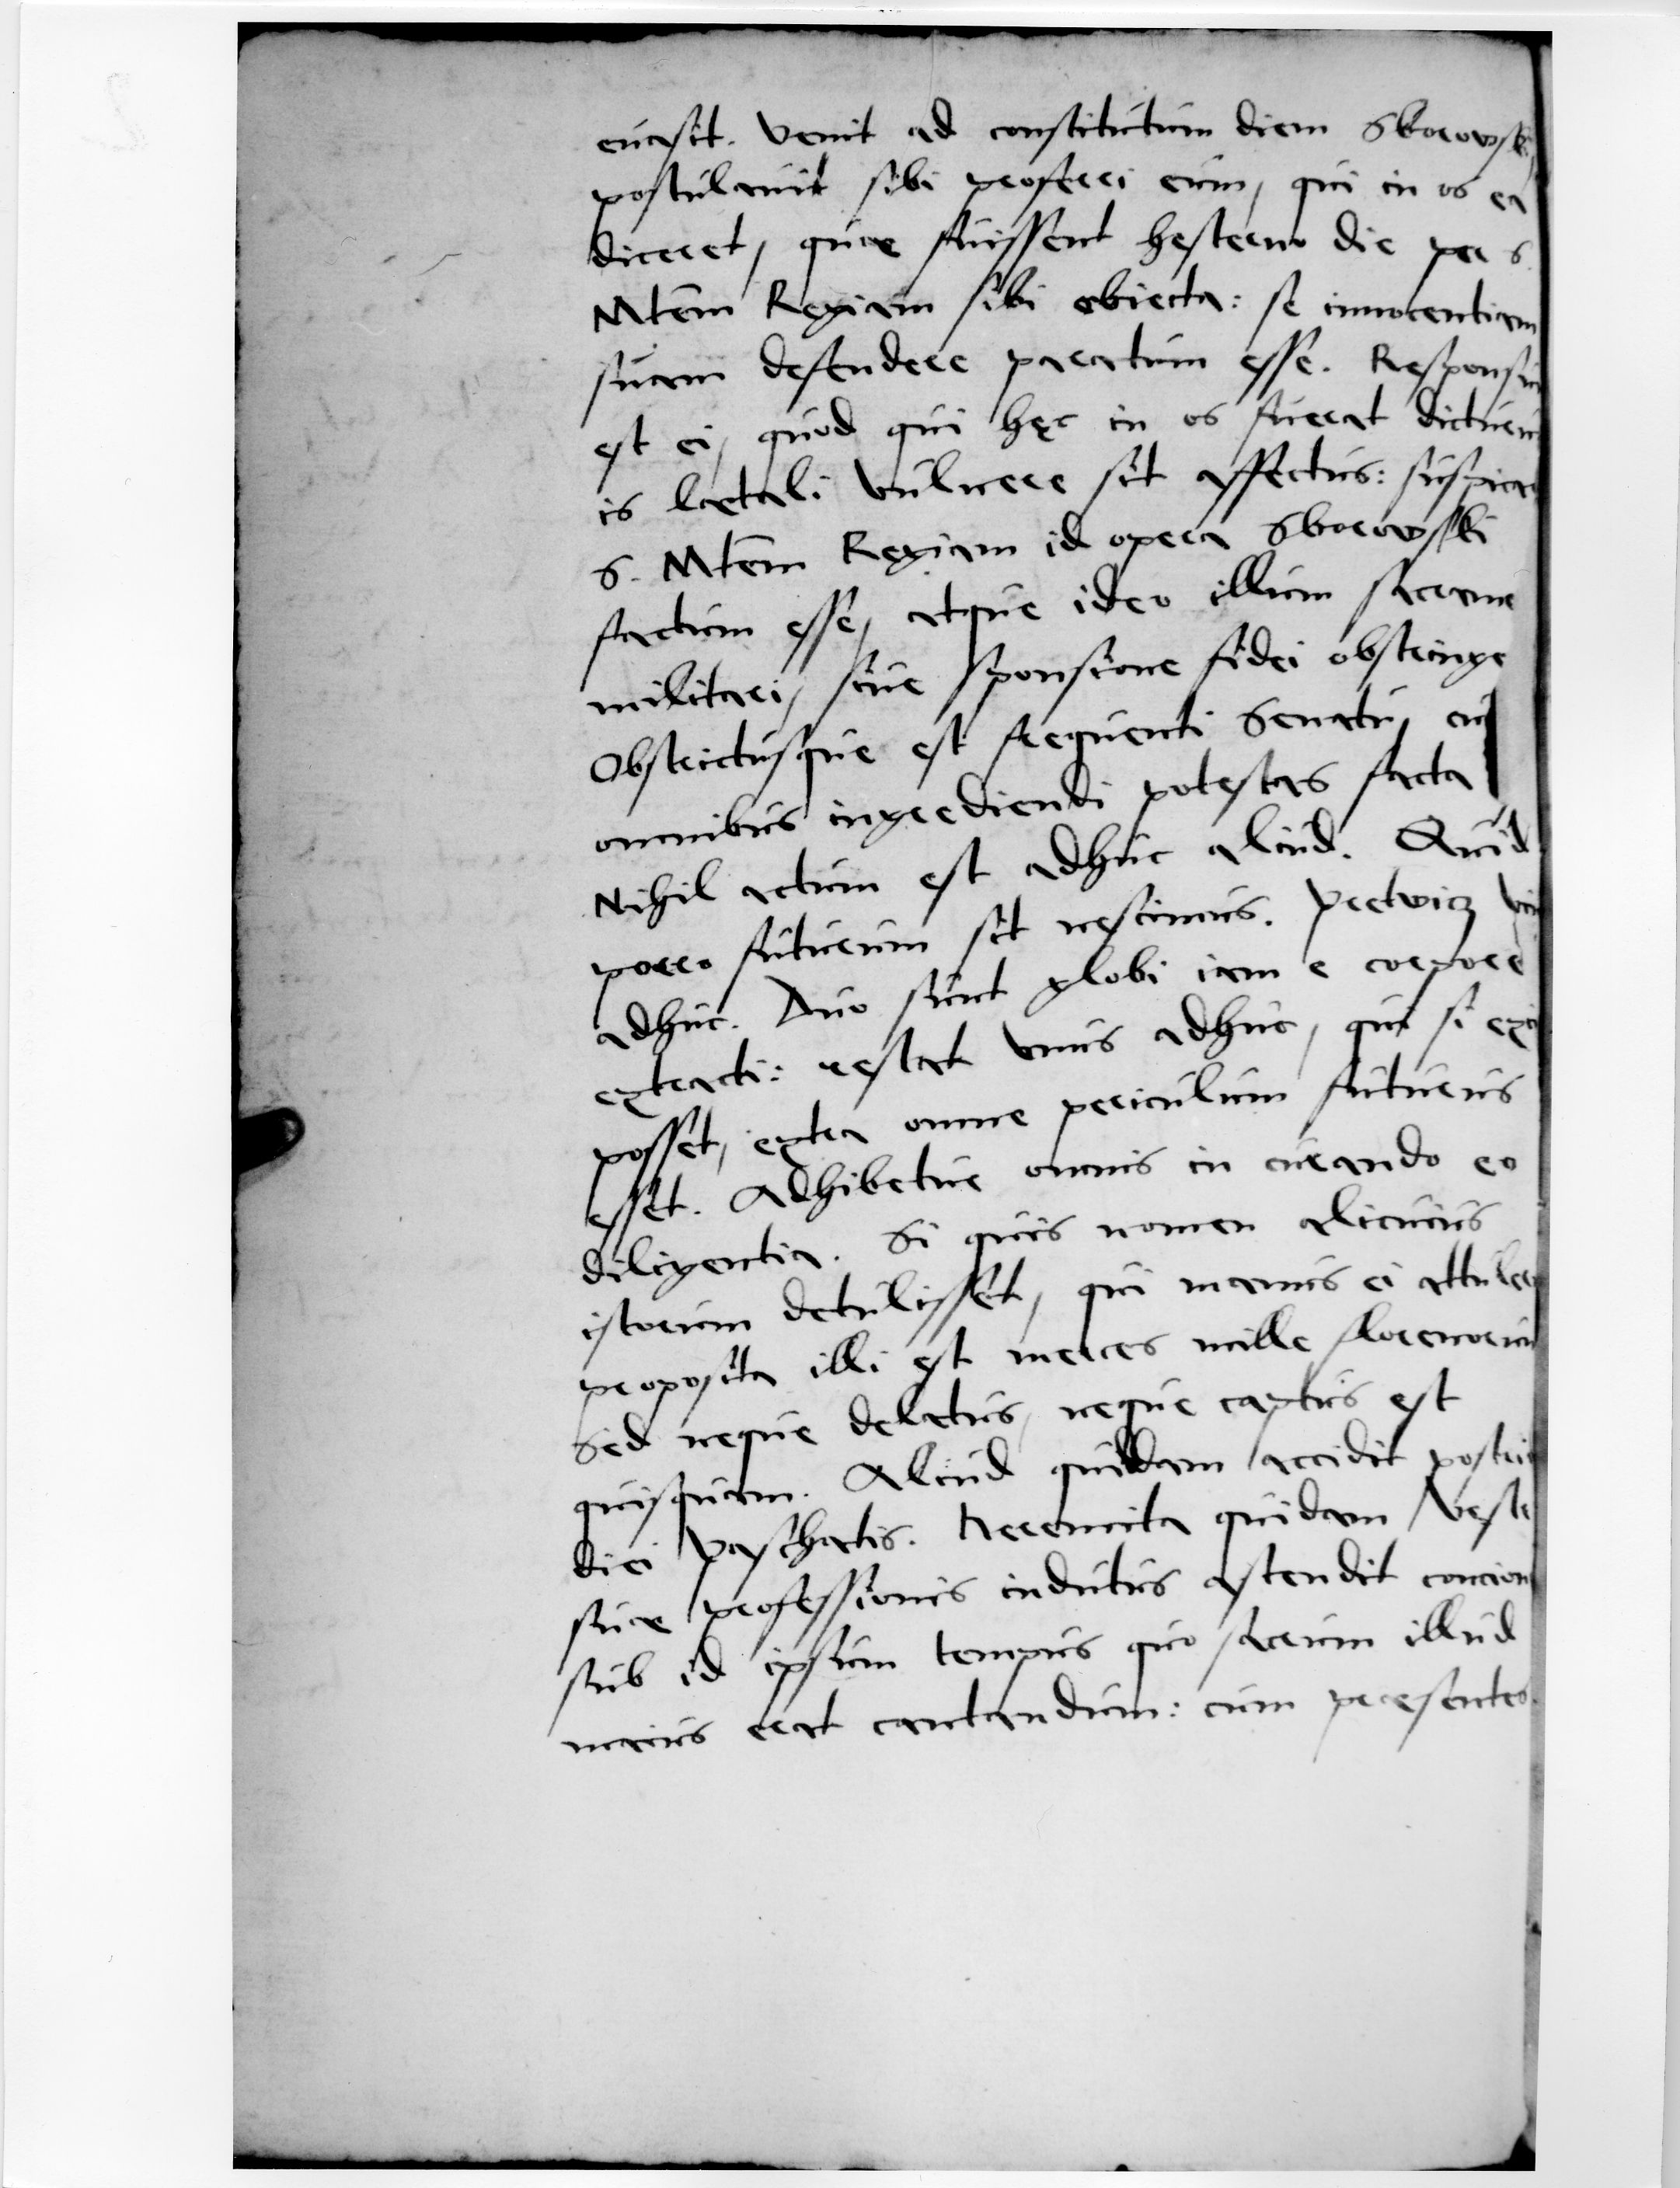 euasit. Venit ad constitutum diem Sborowski,
postulauit sibi proferri eum, qui in os ea
diceret, quae fuissent hesterno die per S.
Mtem Regiam sibi obiecta: se innocentiam
suam defendere paratum esse. Responsum
est ei, quod qui hęc in os fuerat dicturus
is laetali vulnere sit affectus: suspicari
S. Mtem Regiam id opera Sborowski
factum esse, atque ideo illum sacrame
militari, siue sponsione fidei obstringe
Obstrictusque est frequenti Senatu, cu
omnibus ingrediendi potestas facta
Nihil actum est adhuc aliud. Quid
porro futurum sit nescimus. Pretwicz
adhuc. Duo sunt globi iam e corpore
extracti: restat vnus adhuc, qui si exi
posset, extra omne periculum futurus
esset. Adhibetur omnis in curando eo
diligentia. Si quis nomen alicuius
istorum detulisset, qui manus ei attuler
proposita illi est merces mille florenorum
Sed neque delatus, neque captus est
quisquam. Aliud quiddam accidit postri
diei Paschatis. Heremita quidam veste
suae professionis indutus astendit concion
sub id ipsum tempus quo sacrum illud
maius erat cantandum: cum praesentes